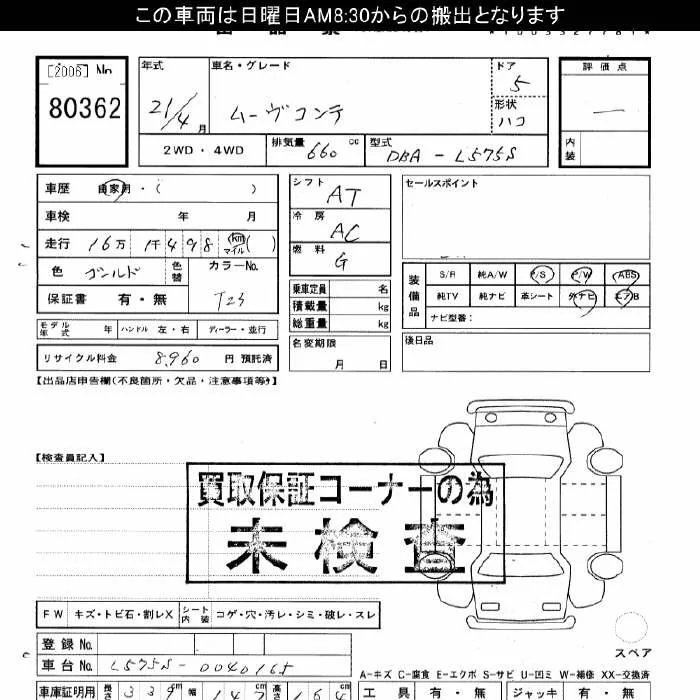 この車両は日曜日AM8:30からの搬出となります
[2006] No
80362
年式
21/4月
車名・グレード
ムーヴコンテ
ドア
5
形状
ハコ
評価点
—
内装
2WD・4WD
排気量 660 cc
型式 DBA-L575S
車歴 自家用・( )
車検 年 月
走行 16万 1千498 km マイル( )
色 ゴールド 色替
カラーNo. T23
保証書 有・無
シフト AT
冷房 AC
燃料 G
セールスポイント
装備品
S/R 純A/W P/S P/W ABS
純TV 純ナビ 革シート 外ナビ エアB
ナビ型番:
乗車定員 名
積載量 kg
総重量 kg
モデル年式 年 ハンドル 左・右 ディーラー・並行
名変期限
月 日
後日品
リサイクル料金 8,960 円 預託済
【出品店申告欄(不良箇所・欠品・注意事項等)】
【検査員記入】
買取保証コーナーの為
未検査
FW キズ・トビ石・割レX シート内装 コゲ・穴・汚レ・シミ・破レ・スレ
スペア
登録No.
車台No. L575S-0040165
A-キズ C-腐食 E-エクボ S-サビ U-凹ミ W-補修 XX-交換済
車庫証明用 長さ 339 幅 147 高さ 164
工具 有・無 ジャッキ 有・無